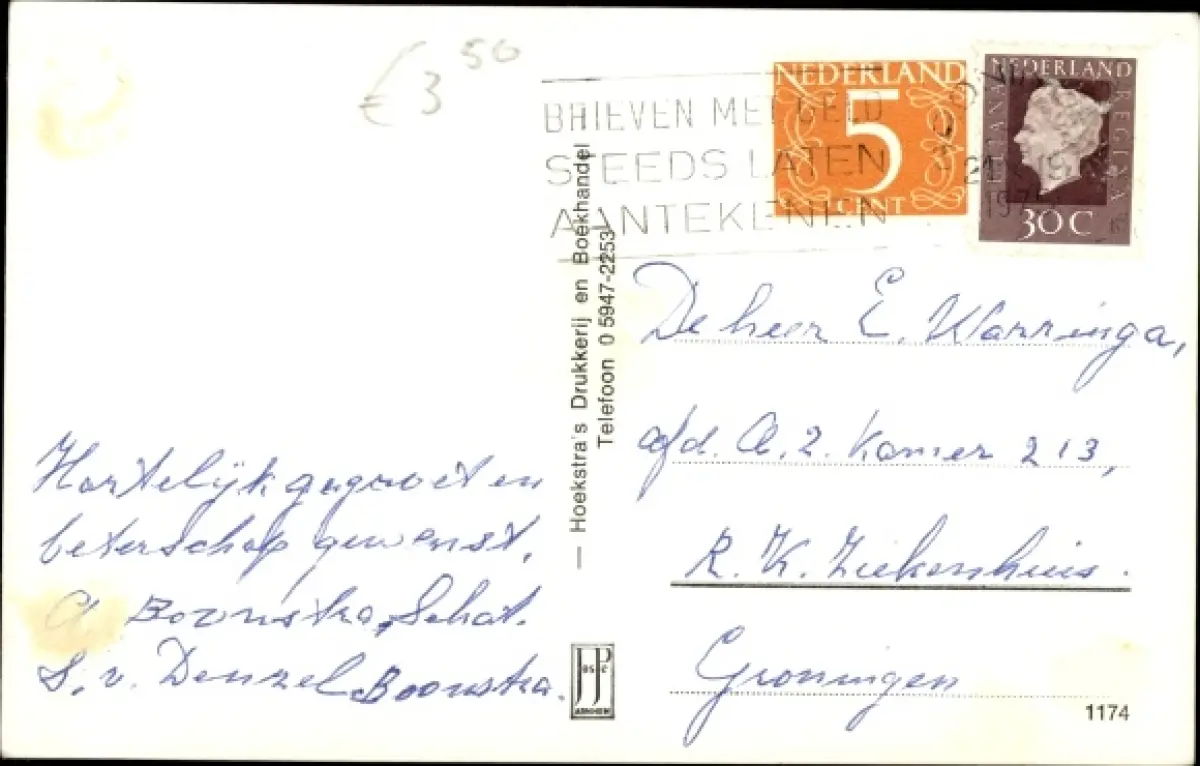 € 3 50
BRIEVEN MET GELD
STEEDS LATEN
AANTEKENEN
21
197
NEDERLAND
5
CENT
NEDERLAND
JULIANA REGINA
30 C
— Hoekstra's Drukkerij en Boekhandel
Telefoon 0 5947-2253
De heer E. Warringa,
afd. A. 2. Kamer 213,
R. K. Ziekenhuis.
Groningen
Hartelijk gegroet en
beterschap gewenst.
A Boonstra, Schat.
S. v. Denzel Boonstra.
JP
ARNHEM
1174